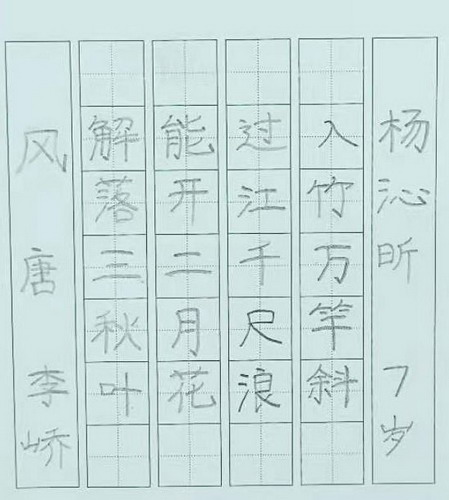 风 唐 李峤
解落三秋叶
能开二月花
过江千尺浪
入竹万竿斜
杨沁昕 7岁